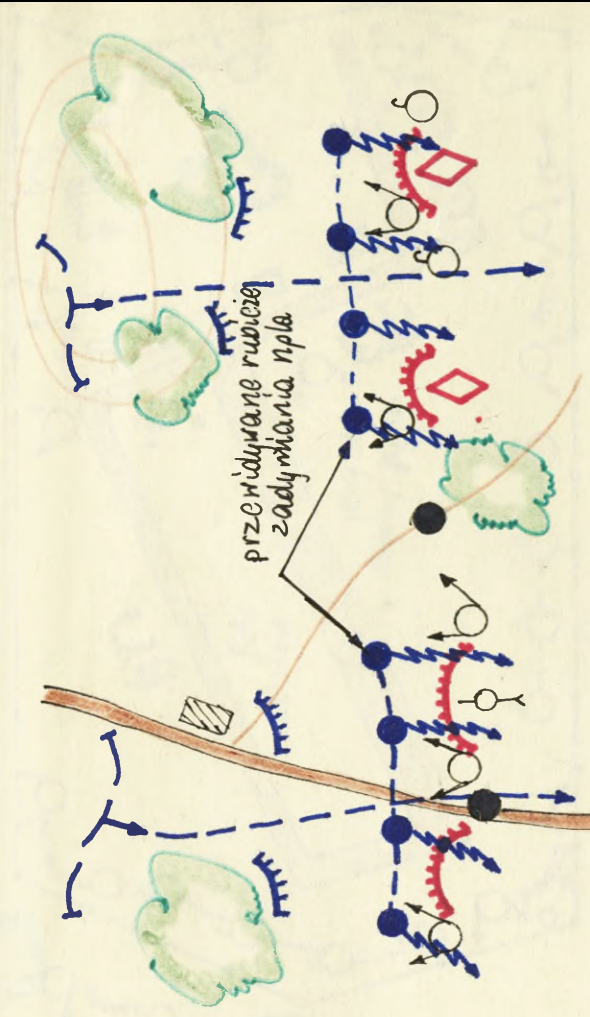 przewidywane rubieże
zadymiania npla